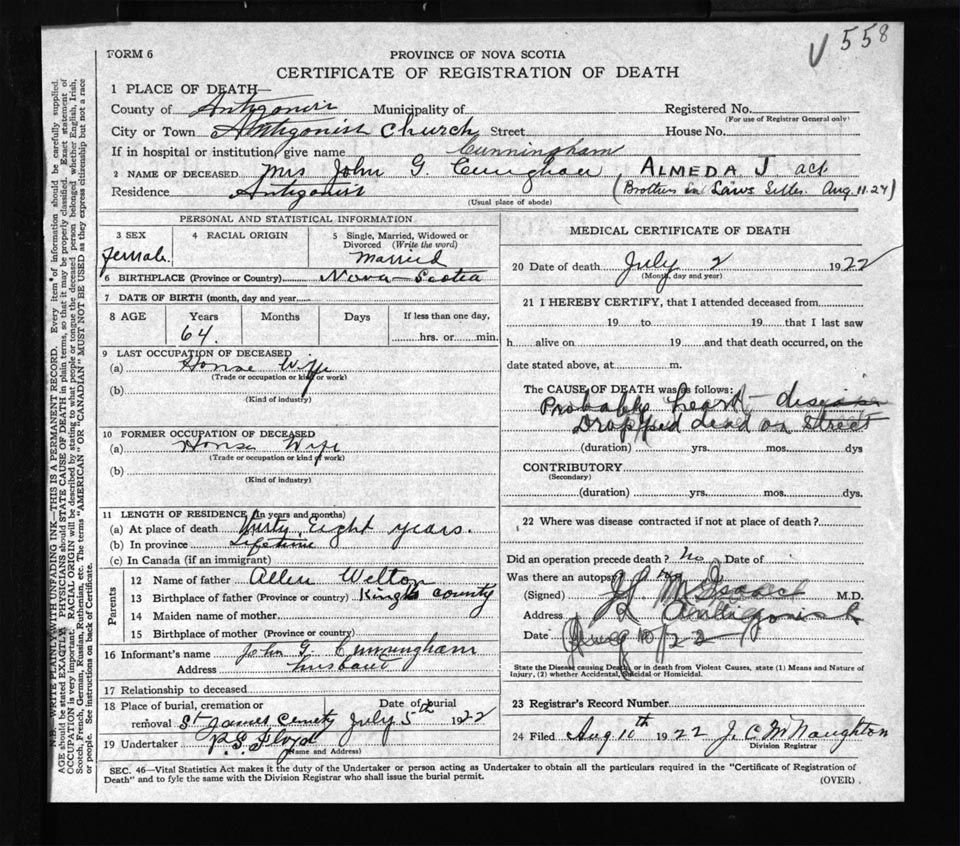 V 558
FORM 6
PROVINCE OF NOVA SCOTIA
CERTIFICATE OF REGISTRATION OF DEATH
1 PLACE OF DEATH—
County of Antigonish Municipality of
Registered No.
(For use of Registrar General only)
City or Town Antigonish Church Street
House No.
If in hospital or institution, give name
Cunningham
2 NAME OF DECEASED Mrs John G. ALMEDA J
Residence Antigonish
(Usual place of abode)
(Brothers in Laws Aug. 11.24)
PERSONAL AND STATISTICAL INFORMATION
3 SEX
female.
4 RACIAL ORIGIN
5 Single, Married, Widowed or Divorced (Write the word)
Married
6 BIRTHPLACE (Province or Country) Nova Scotia
7 DATE OF BIRTH (month, day and year
8 AGE Years Months Days If less than one day,
64. hrs. or min.
9 LAST OCCUPATION OF DECEASED
(a) House Wife
(Trade or occupation or kind of work)
(b)
(Kind of industry)
10 FORMER OCCUPATION OF DECEASED
(a) House Wife
(Trade or occupation or kind of work)
(b)
(Kind of industry)
11 LENGTH OF RESIDENCE (in years and months)
(a) At place of death Thirty Eight years.
(b) In province Lifetime
(c) In Canada (if an immigrant)
Parents
12 Name of father Allen Welton
13 Birthplace of father (Province or country) Kings County
14 Maiden name of mother
15 Birthplace of mother (Province or country)
16 Informant's name John G. Cunningham
Address husband
17 Relationship to deceased
18 Place of burial, cremation or Date of burial
removal St James Cemety July 5th 1922
19 Undertaker P.S. Floyd
(Name and Address)
MEDICAL CERTIFICATE OF DEATH
20 Date of death July 2 1922
(Month, day and year)
21 I HEREBY CERTIFY, that I attended deceased from
19 to 19 that I last saw
h alive on 19 and that death occurred, on the
date stated above, at m.
The CAUSE OF DEATH was as follows:
Probably heart disease
Dropped dead on Street
(duration) yrs. mos. dys
CONTRIBUTORY
(Secondary)
(duration) yrs. mos. dys.
22 Where was disease contracted if not at place of death?
Did an operation precede death? no Date of
Was there an autopsy no
(Signed) M.D.
Address Antigonish
Date Aug 10/22
State the Disease causing Death, or in death from Violent Causes, state (1) Means and Nature of
Injury, (2) whether Accidental, Suicidal or Homicidal.
23 Registrar's Record Number
24 Filed Aug 10th 1922 J. C. McNaughton
Division Registrar
SEC. 46—Vital Statistics Act makes it the duty of the Undertaker or person acting as Undertaker to obtain all the particulars required in the "Certificate of Registration of
Death" and to fyle the same with the Division Registrar who shall issue the burial permit.
(OVER)
N.B. WRITE PLAINLY WITH UNFADING INK—THIS IS A PERMANENT RECORD. Every item of information should be carefully supplied.
AGE should be stated EXACTLY. PHYSICIANS should STATE CAUSE OF DEATH in plain terms, so that it may be properly classified. Exact statement of
OCCUPATION is very important. RACIAL ORIGIN will be described by stating to what people or tongue the deceased person belonged whether English, Irish,
Scotch, French, German, Russian, Ruthenian, etc. The terms "AMERICAN" OR "CANADIAN" MUST NOT BE USED as they express citizenship but not a race
or people. See instructions on back of Certificate.